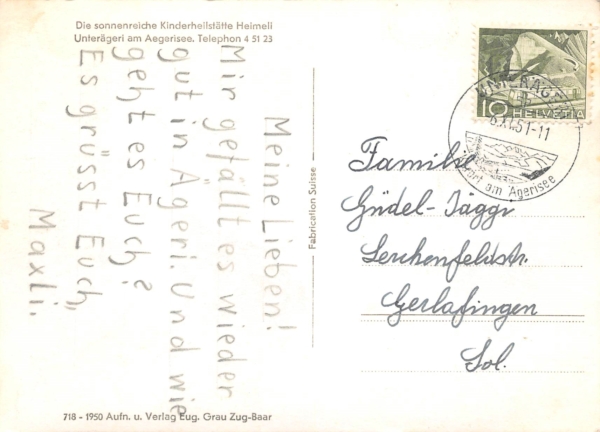 Die sonnenreiche Kinderheilstätte Heimeli
Unterägeri am Aegerisee. Telephon 4 51 23
Meine Lieben!
Mir gefällt es wieder
gut in Ägeri. Und wie
geht es Euch?
Es grüsst Euch,
Maxli.
Fabrication Suisse
10 HELVETIA
UNTERÄGERI
6.XI.51-11
am Ägerisee
Familie
Güdel-Jäggi
Lerchenfeldstr.
Gerlafingen
Sol.
718 - 1950 Aufn. u. Verlag Eug. Grau Zug-Baar